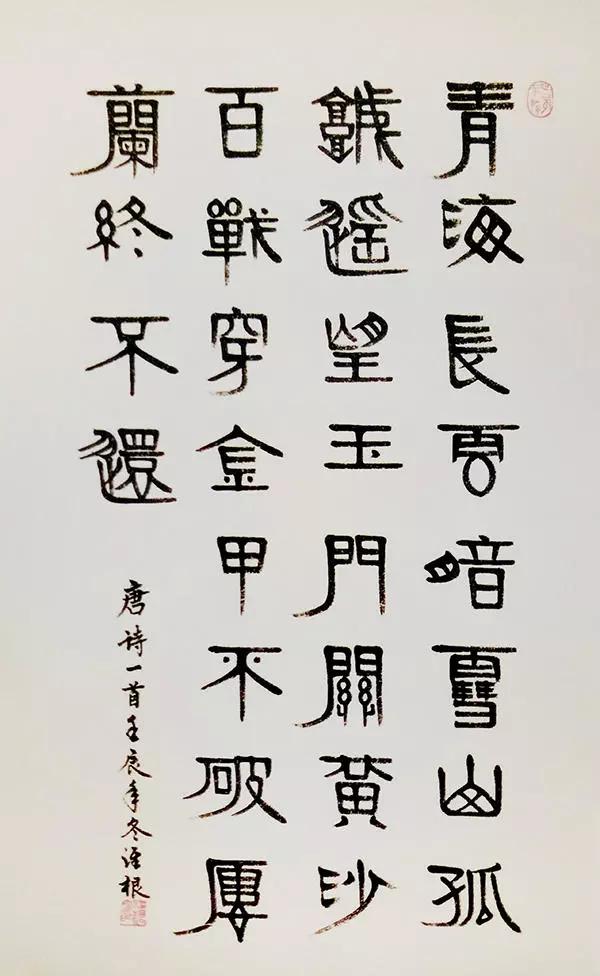 青海長雲暗雪山孤
城遙望玉門關黄沙
百戰穿金甲不破樓
蘭終不還
唐诗一首壬辰年冬根